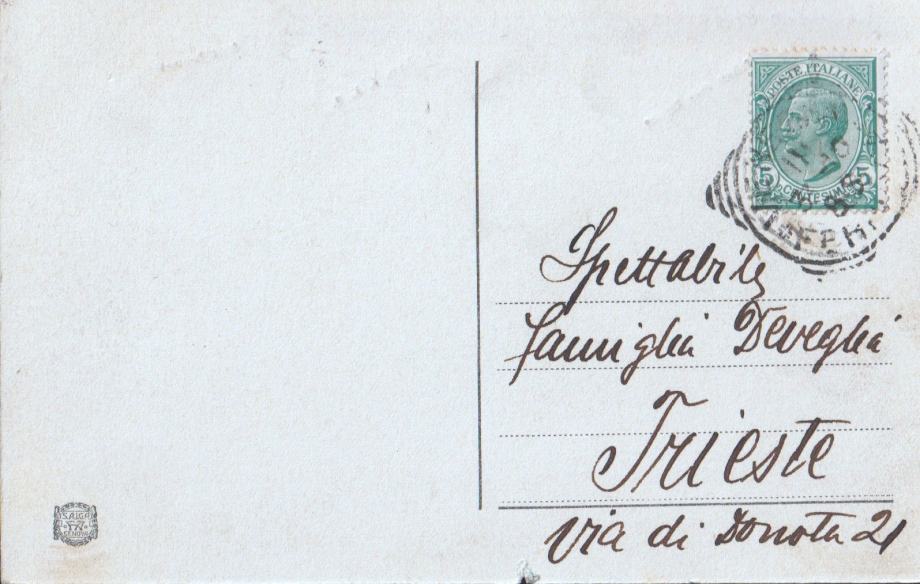 POSTE ITALIANE
5 CENTESIMI 5
Spettabile
famiglia Deveglia
Trieste
Via di Donota 21
SAIGA
FN
GENOVA